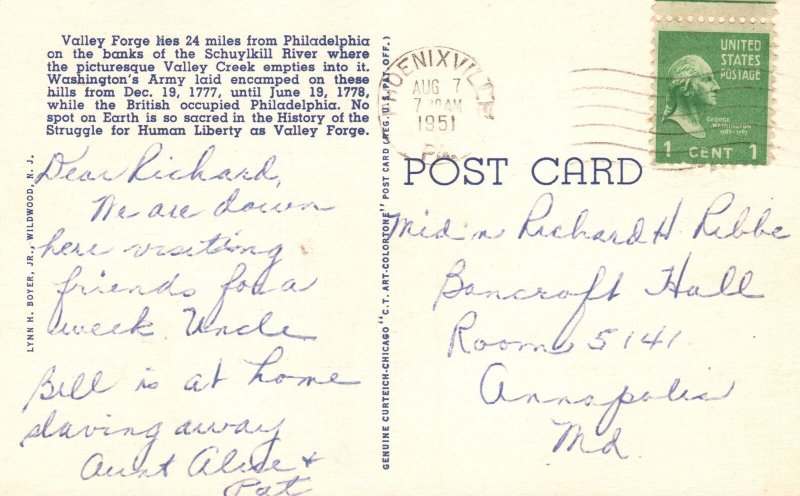 Valley Forge lies 24 miles from Philadelphia
on the banks of the Schuylkill River where
the picturesque Valley Creek empties into it.
Washington's Army laid encamped on these
hills from Dec. 19, 1777, until June 19, 1778,
while the British occupied Philadelphia. No
spot on Earth is so sacred in the History of the
Struggle for Human Liberty as Valley Forge.
Dear Richard,
We are down
here visiting
friends for a
week Uncle
Bill is at home
slaving away
Aunt Alice +
Pat
LYNN H. BOYER, JR., WILDWOOD, N. J.
GENUINE CURTEICH-CHICAGO "C.T. ART-COLORTONE" POST CARD (REG. U.S. PAT. OFF.)
PHOENIXVILLE
AUG 7
AM
1951
PA.
UNITED
STATES
POSTAGE
GEORGE
WASHINGTON
1789-1797
1 CENT 1
POST CARD
Mid'n Richard H. Ribbe
Bancroft Hall
Room 5141
Annapolis
Md.